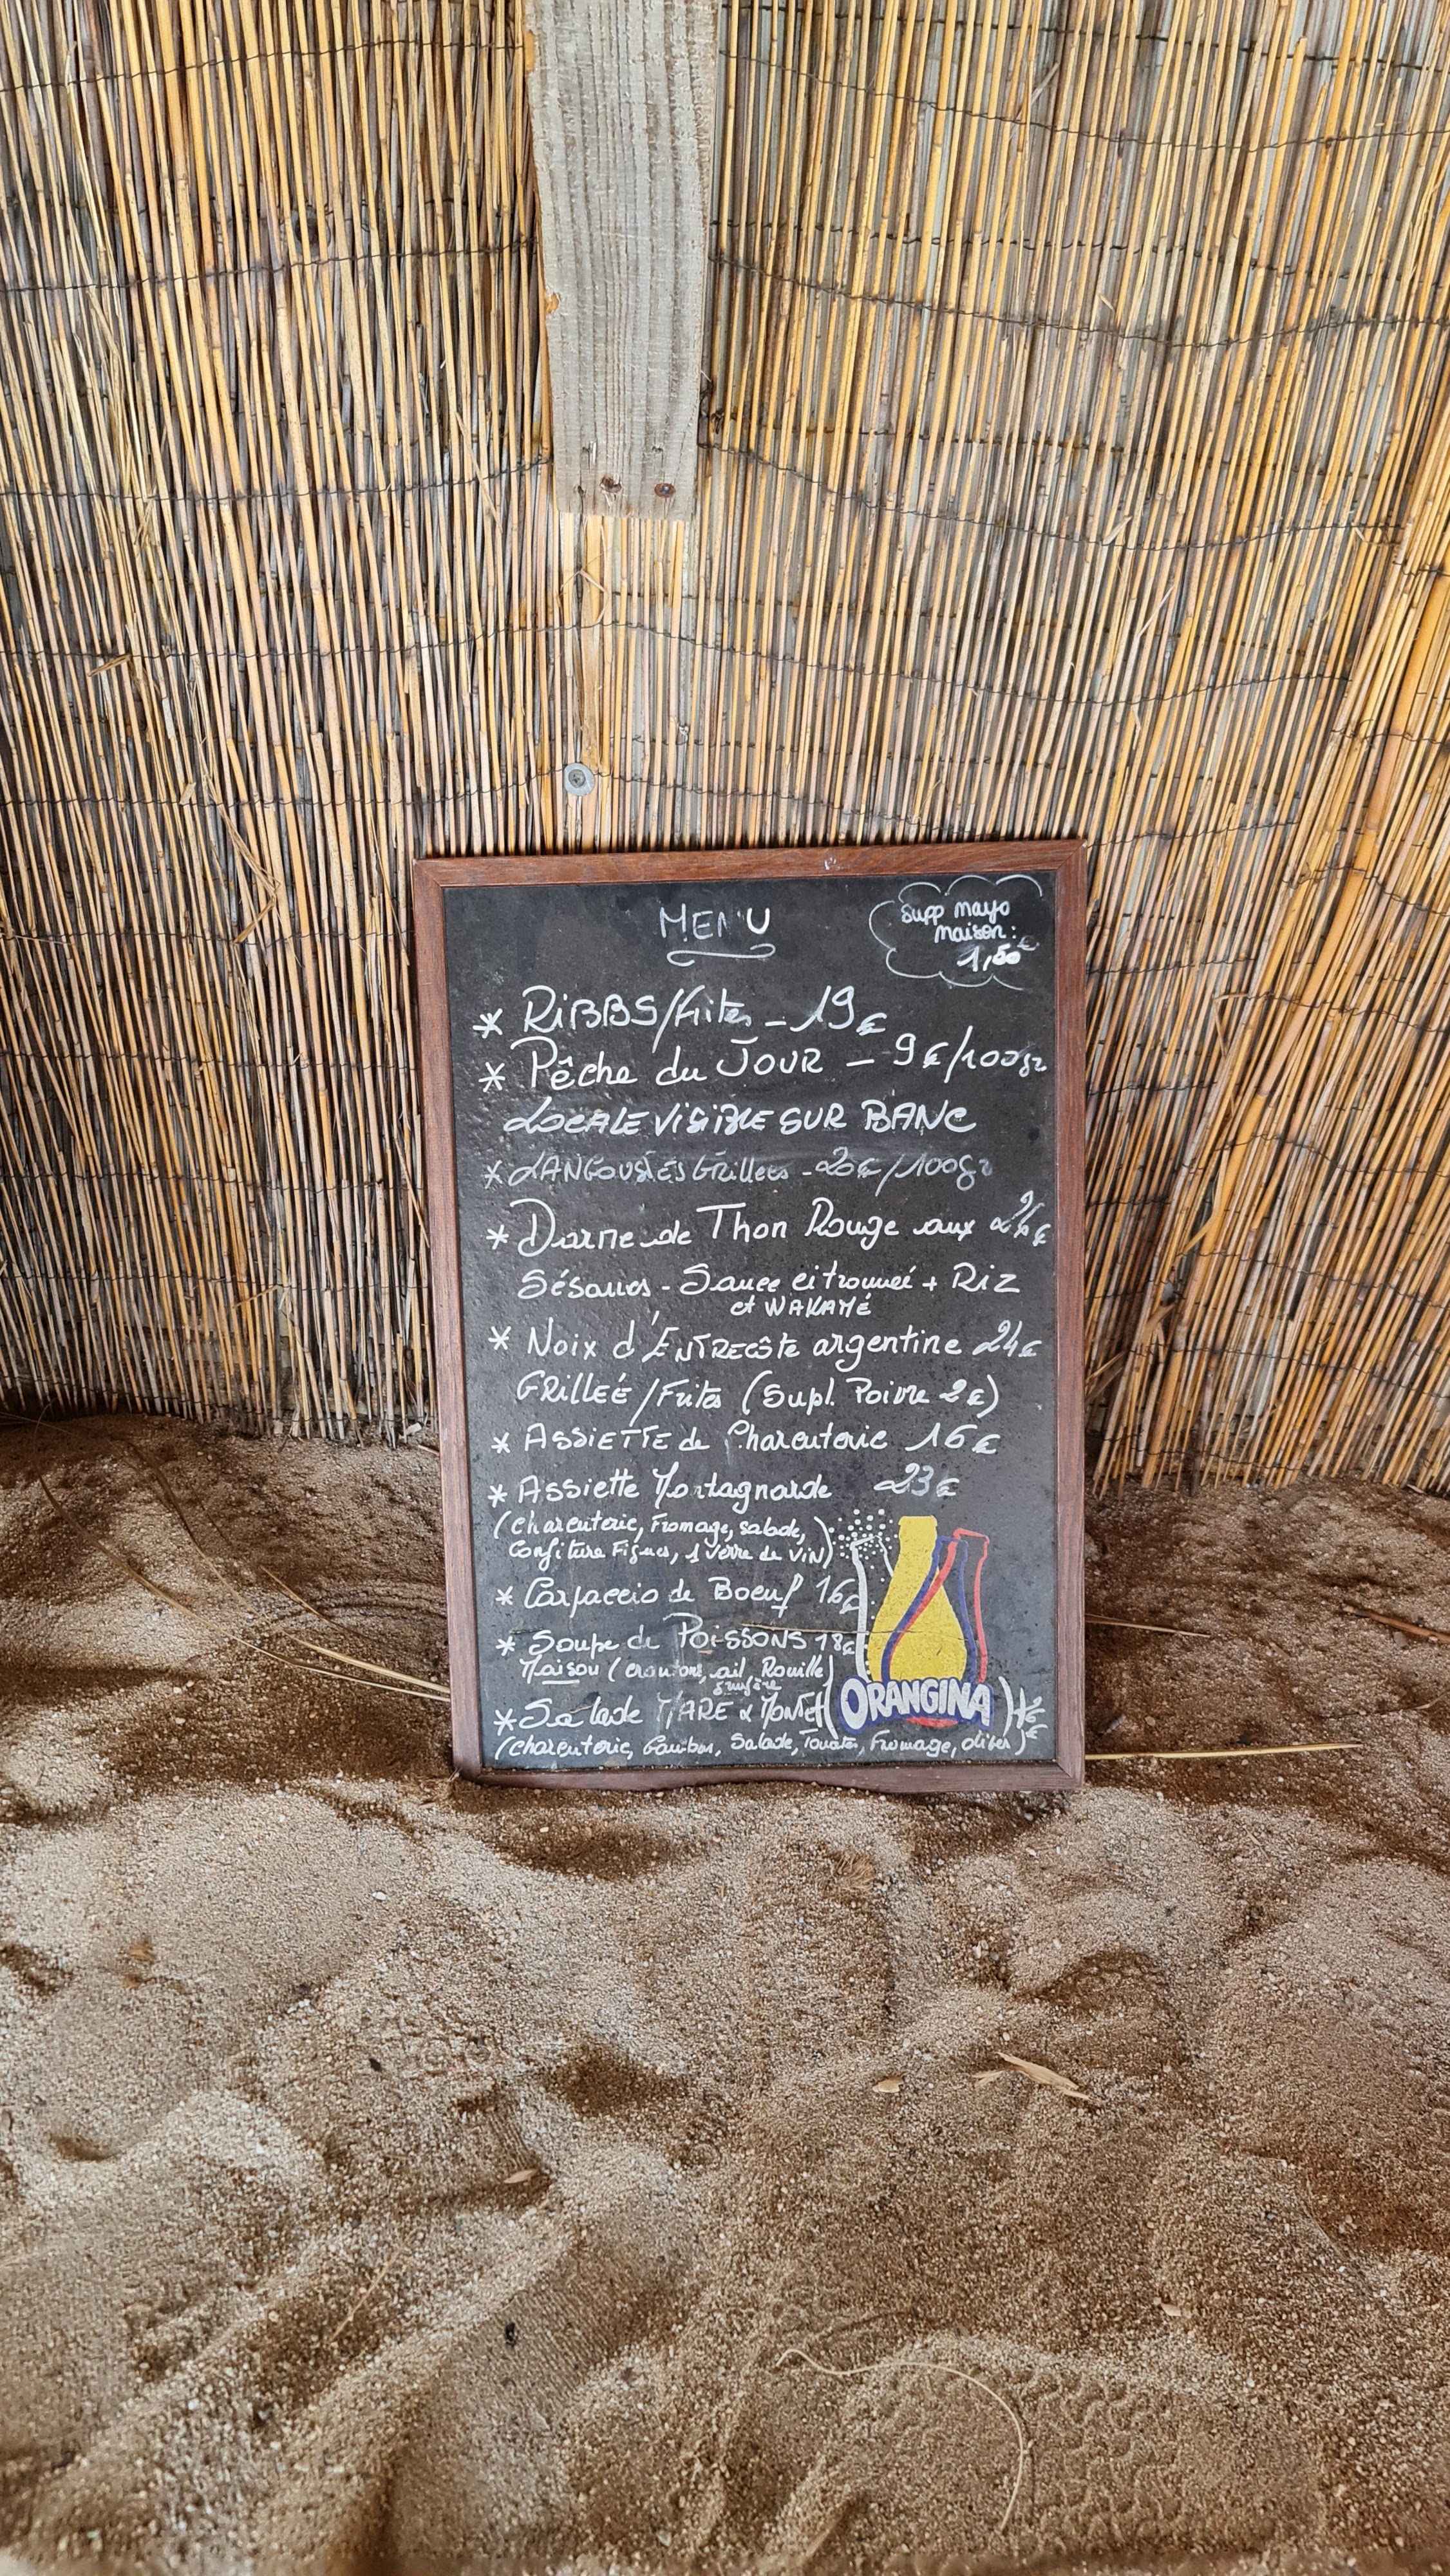 MENU
supp mayo
maison:
1,50€
* RiBBS/Frites - 19€
* Pêche du JOUR - 9€/100gr
LOCALE ViSiBLE SUR BANC
* LANGOUSTES Grillees - 20€/100gr
* Darne de Thon Rouge aux
Sésames - Sauce citronneé + Riz
et WAKAMÉ
* Noix d'ENTRECôte argentine 24€
GRiLLEÉ/Frites (Supl. Poivre 2€)
* ASSIETTE de Charcuterie 16€
* Assiette Montagnarde 23€
(charcuterie, Fromage, salade,
Confiture Figues, 1 verre de ViN)
* Carpaccio de Boeuf 16€
* Soupe de POiSSONS 18€
Maison (croutons, ail, Rouille
gruyère)
ORANGINA
* Salade MARE & MONTE
(charcuterie, Gambas, Salade, Tomates, Fromage, olives)